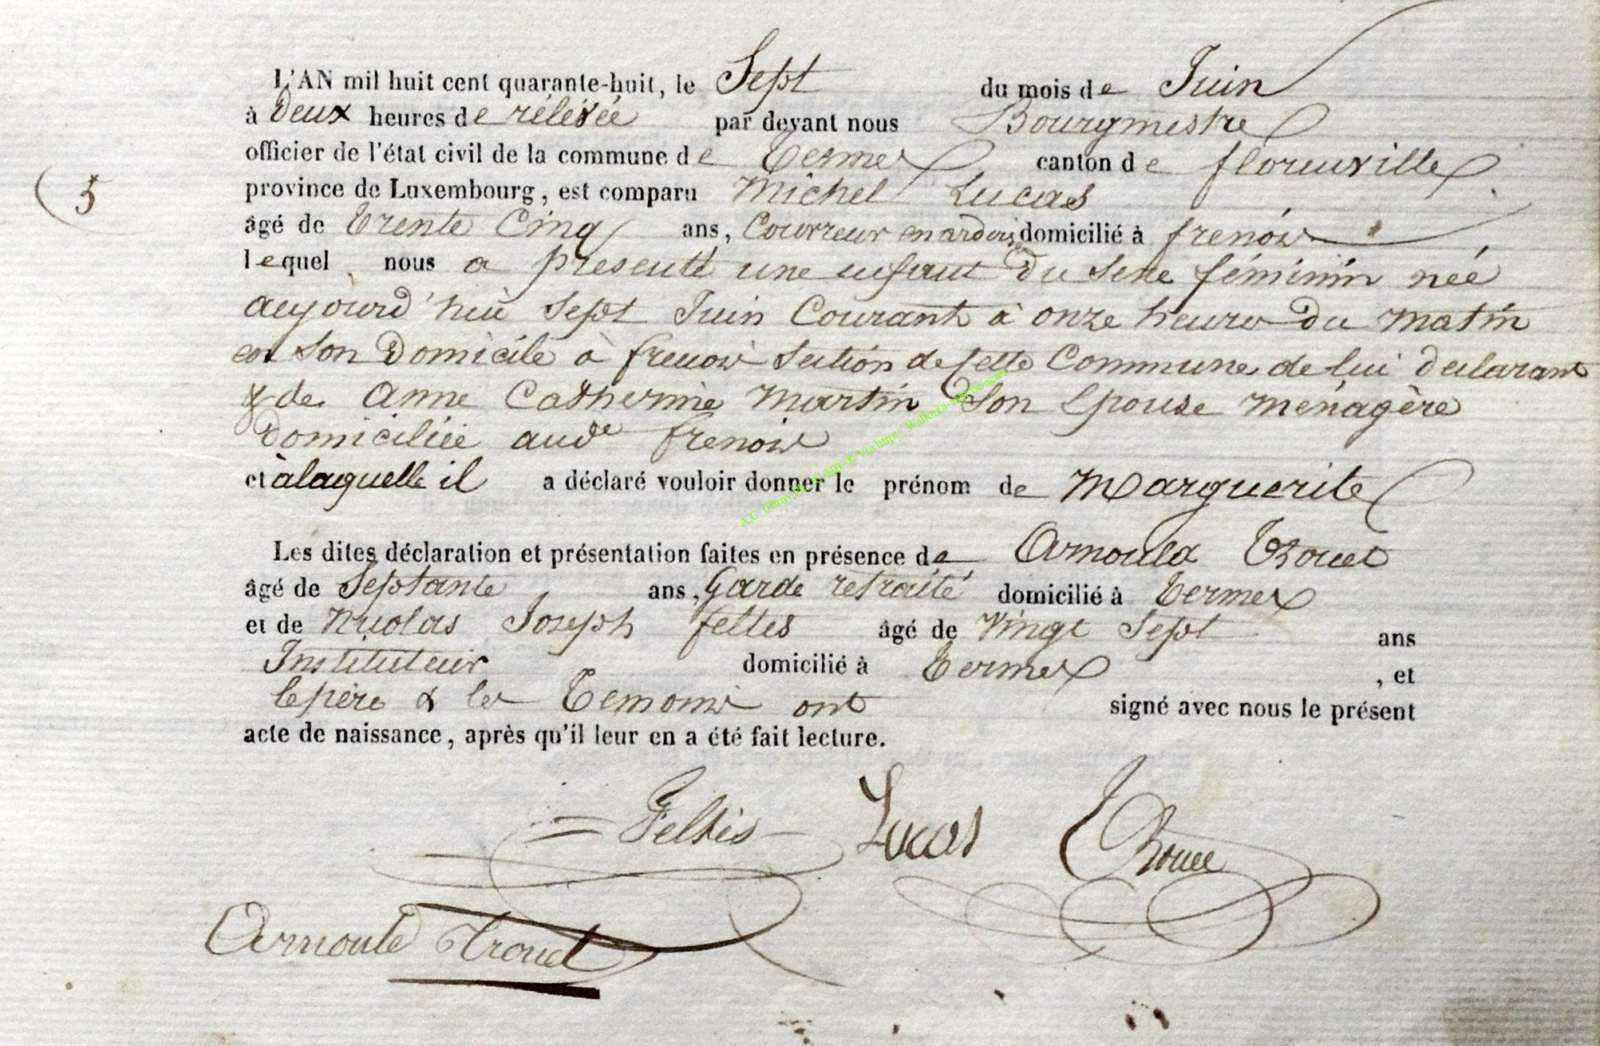 L'AN mil huit cent quarante-huit, le Sept du mois de Juin
à Deux heures de rélévée par devant nous Bourgmestre
officier de l'état civil de la commune de Termes canton de florenville
5
province de Luxembourg, est comparu Michel Lucas
âgé de Trente Cinq ans, Couvreur en ardois domicilié à frenois
lequel nous a présenté une enfant du sexe féminin née
aujourd'hui Sept Juin Courant à onze heures du matin
en son Domicile à frenois section de cette Commune de lui déclarant
& de Anne Catherine Martin Son Epouse ménagère
Domiciliée audt frenois
et à laquelle il a déclaré vouloir donner le prénom de Marguerite
Les dites déclaration et présentation faites en présence de Arnould Trouet
âgé de Septante ans, Garde retraité domicilié à Termes
et de Nicolas Joseph feltes âgé de Vingt Sept ans
Instituteur domicilié à Termes, et
le père & les Temoins ont signé avec nous le présent
acte de naissance, après qu'il leur en a été fait lecture.
Lucas
Arnould Trouet